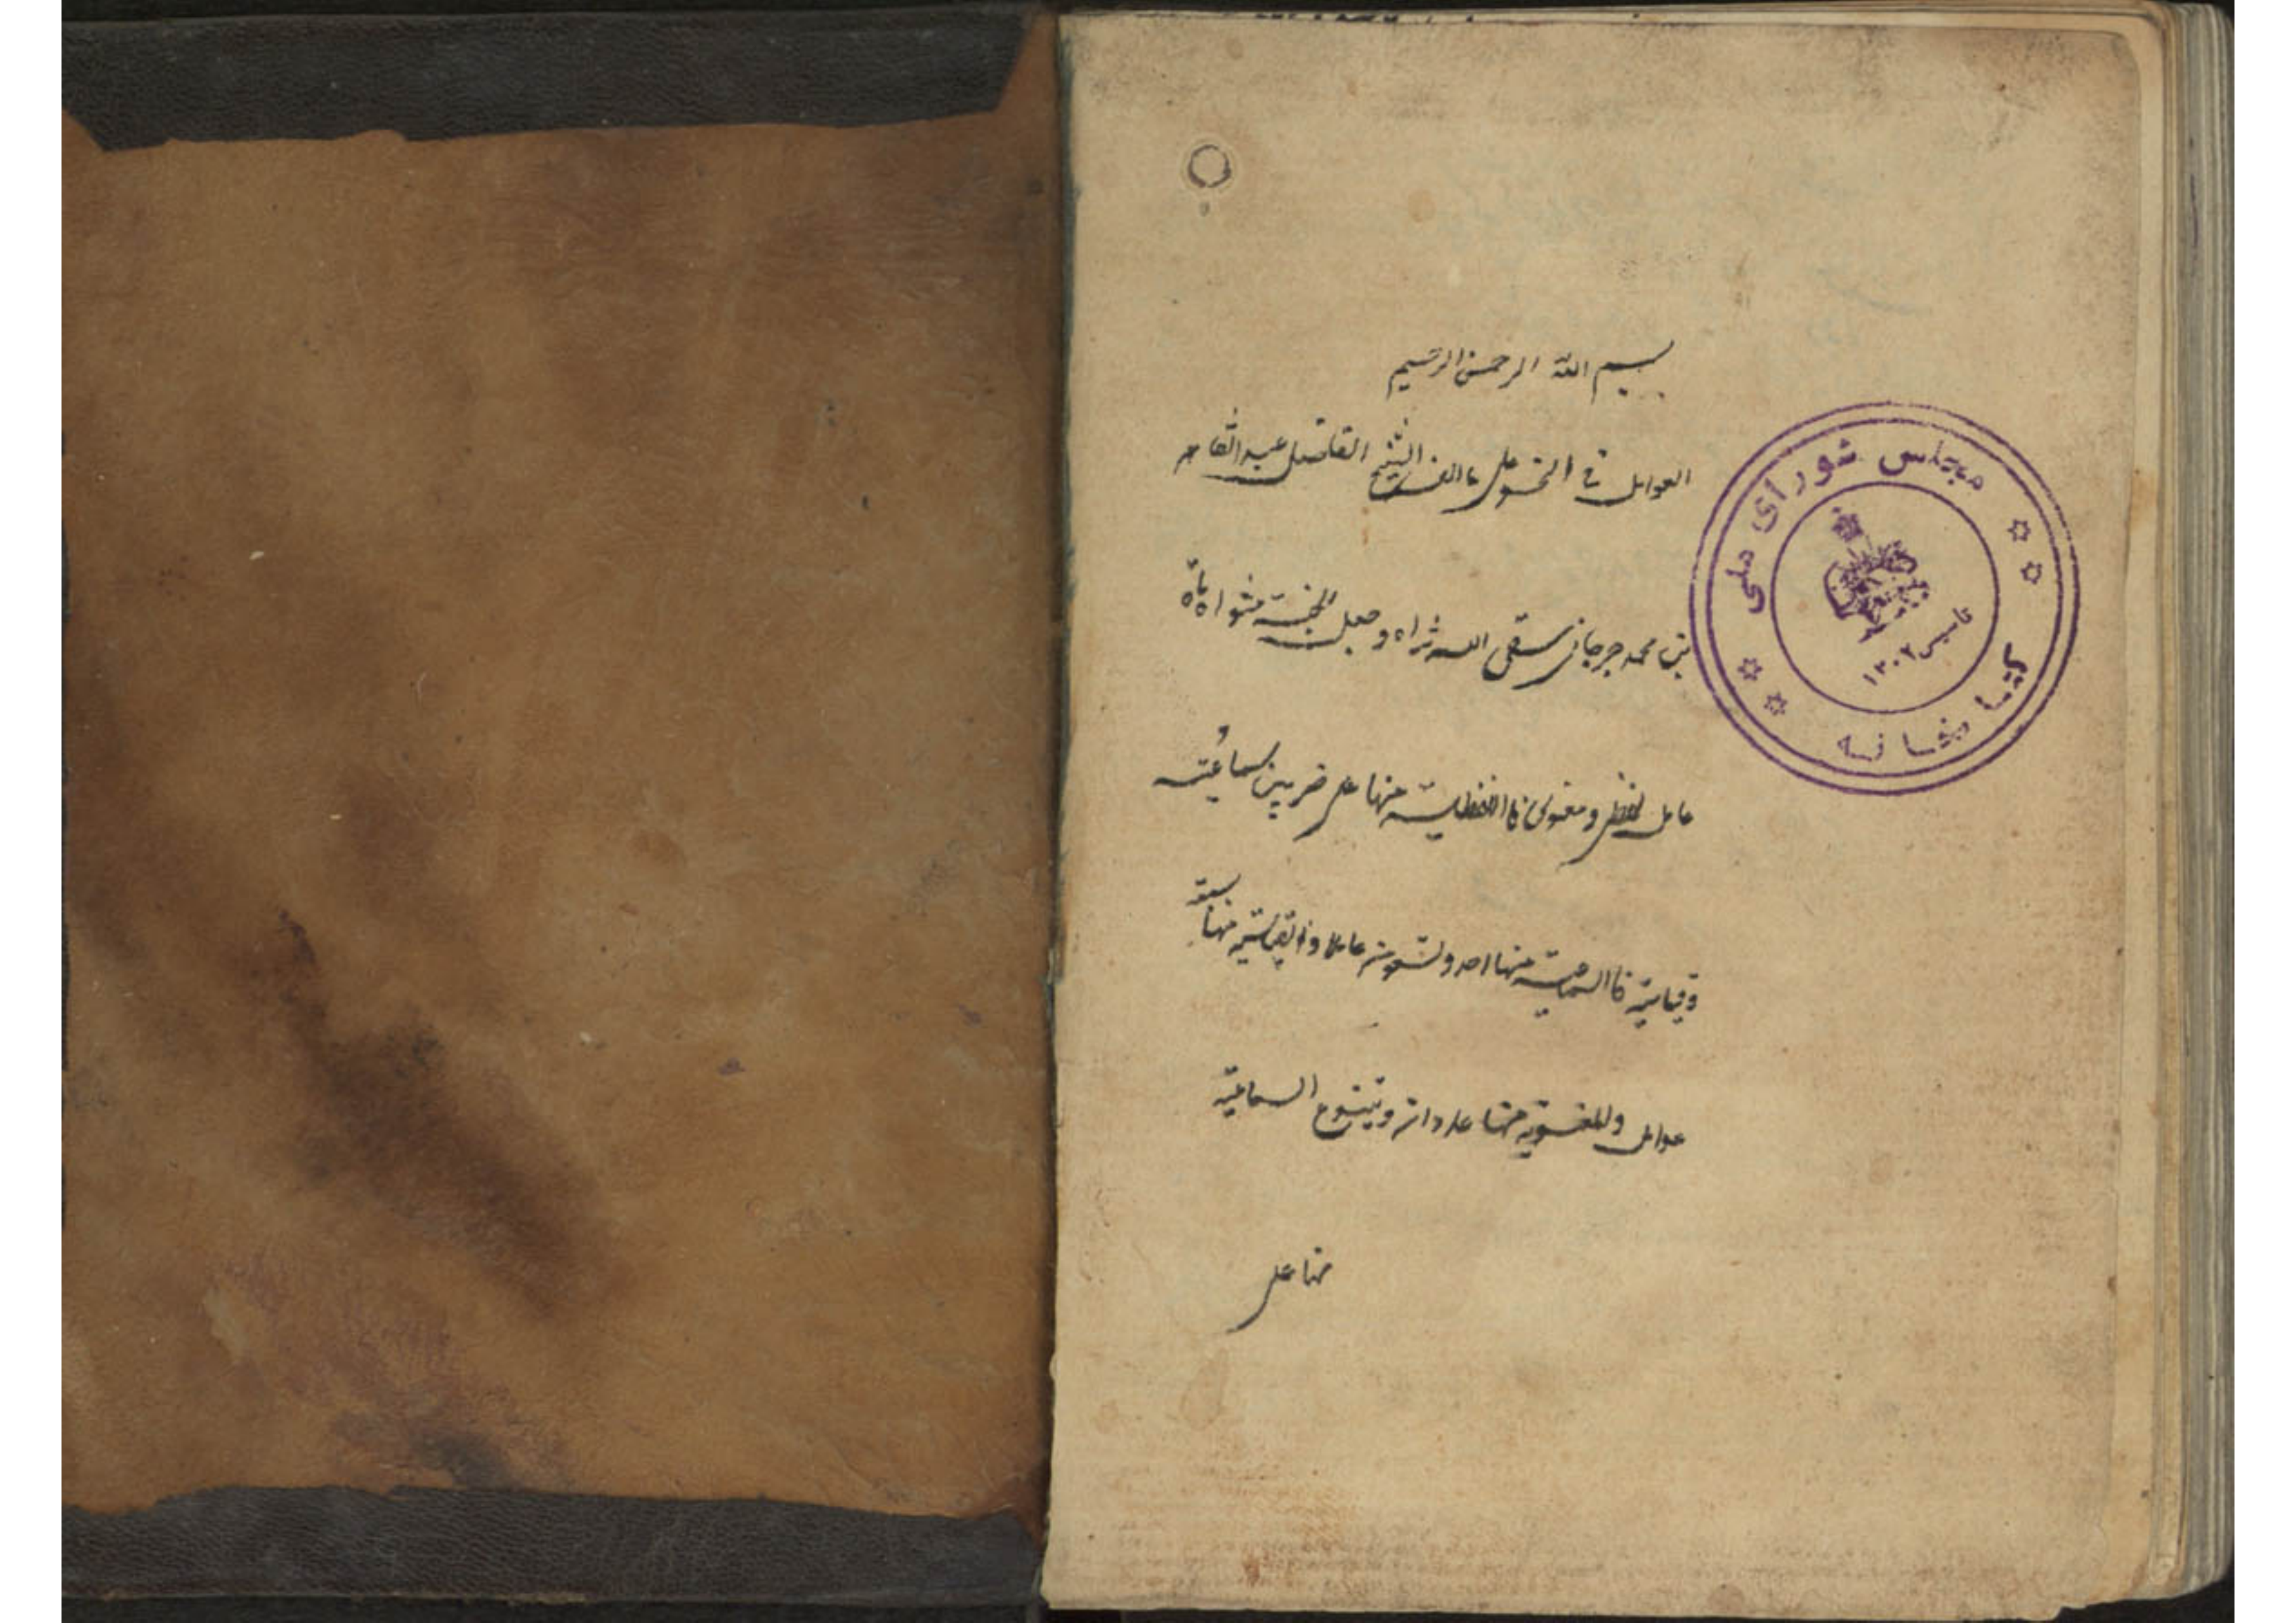 بسم الله الرحمن الرحیم
العوامل فی النحو علی ماالفه الشیخ الفاضل عبد القاهر
بن محمد جرجانی سقی الله ثراه وجعل الجنة مثواه
عامل لفظی و معنوی فااللفظیة منها علی ضربین سماعیة
وقیاسیة فاالسماعیة منها احد وتسعون عاملا والقیاسیة منها سبعة
عوامل والمعنویة منها عددان وتتنوع السماعیة
منها علی
مجلس شورای ملی
کتابخانه
تاسیس ۱۳۰۲